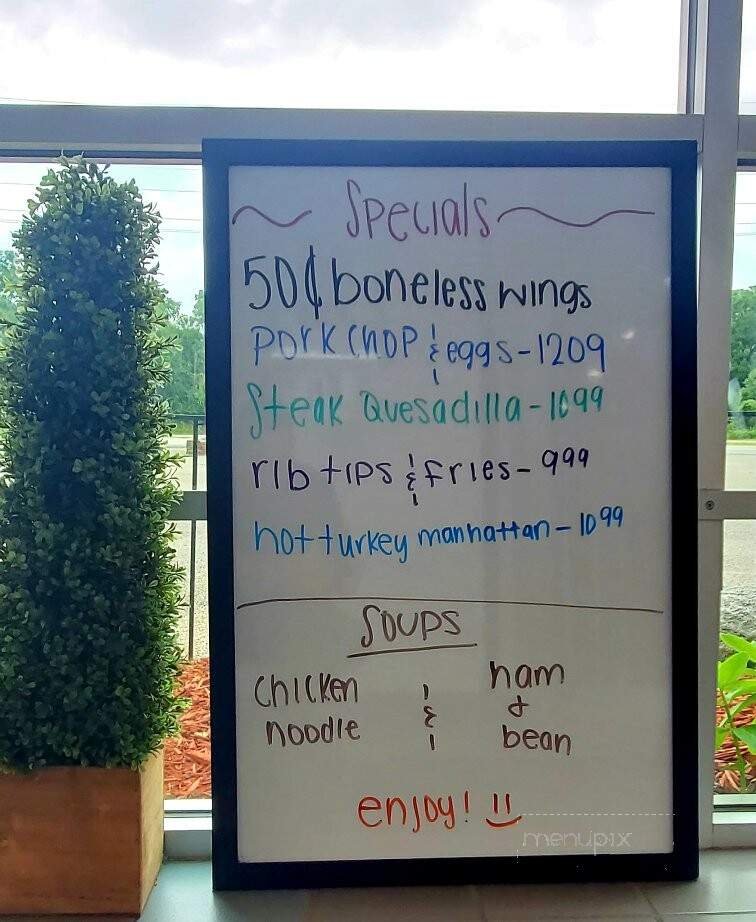 Specials
50¢ boneless wings
Pork chop & eggs - 1209
Steak Quesadilla - 1099
rib tips & fries - 999
hot turkey manhattan - 1099
Soups
Chicken noodle & ham & bean
enjoy!
menupix